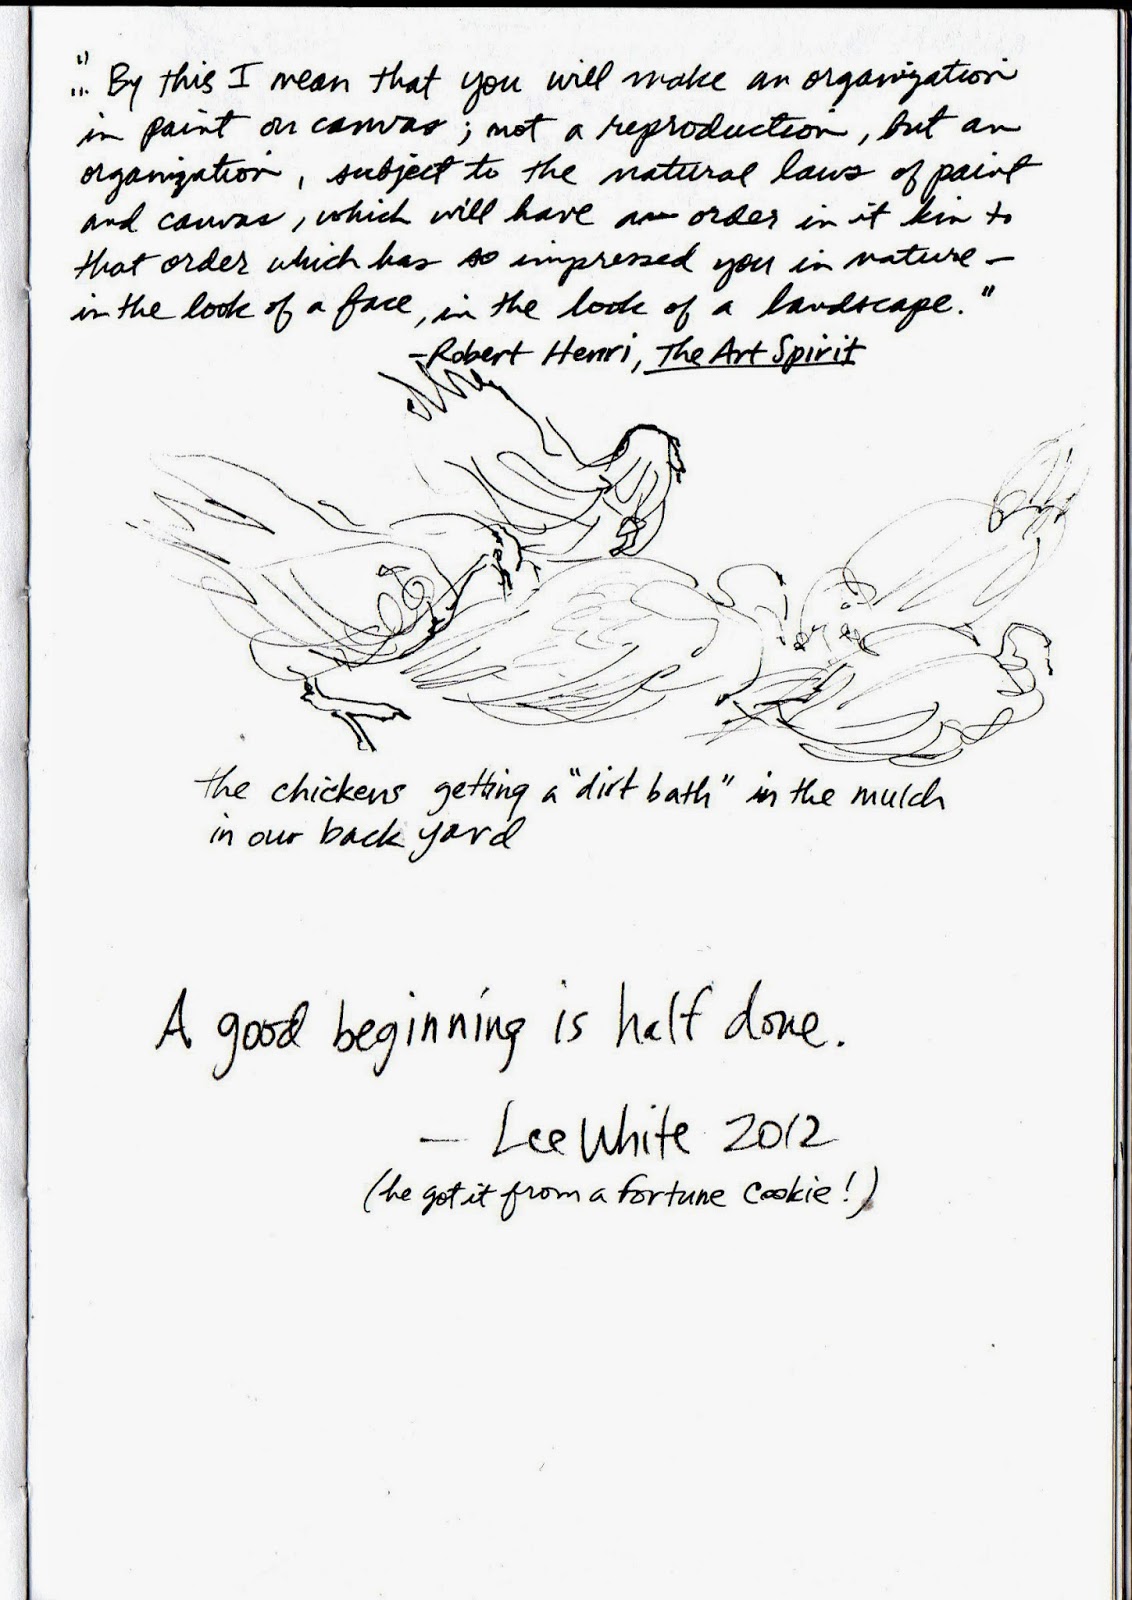 "... By this I mean that you will make an organization
in paint on canvas; not a reproduction, but an
organization, subject to the natural laws of paint
and canvas, which will have an order in it kin to
that order which has so impressed you in nature—
in the look of a face, in the look of a landscape."
-Robert Henri, The Art Spirit
the chickens getting a "dirt bath" in the mulch
in our back yard
A good beginning is half done.
— Lee White 2012
(he got it from a fortune cookie!)